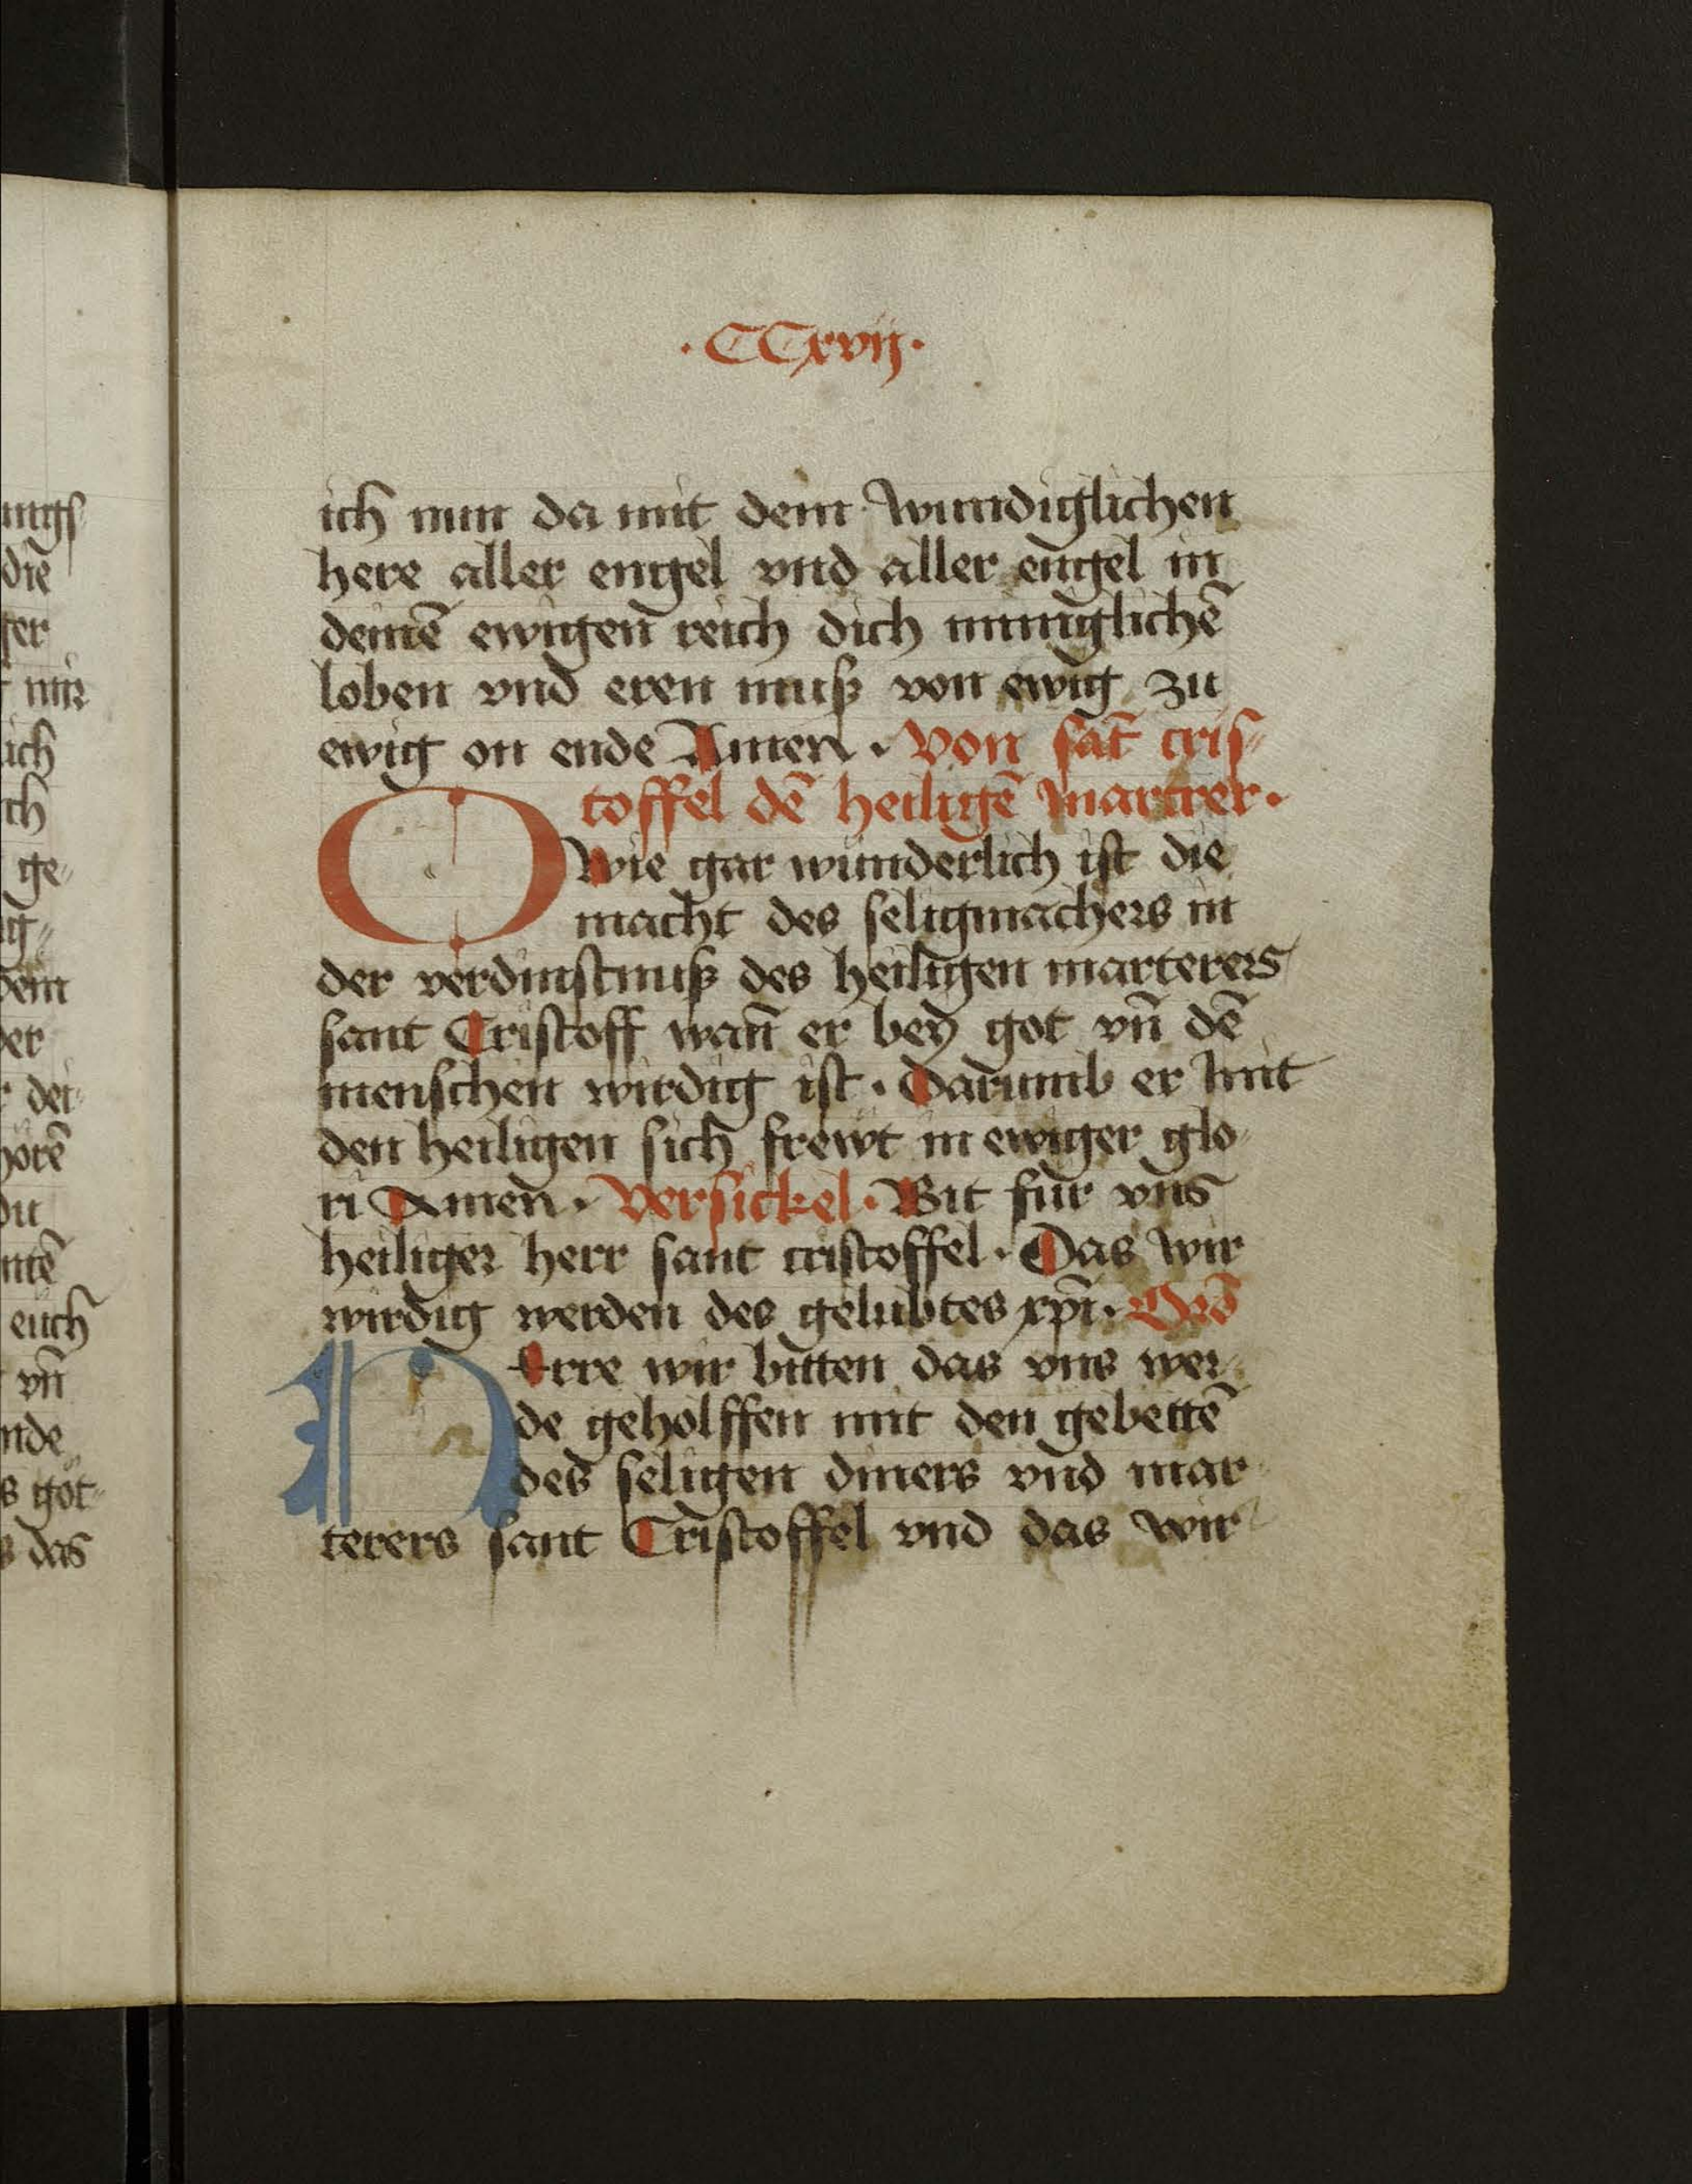 ·CCxvij·
ich nun da mit dem wirndiglichen
here aller engel vnd aller engel in
deinē ewigen reich dich mūniglichē
loben vnd eren muß von ewig zu
ewig on ende Amen. Von sāt cris⸗
toffel dē heiligē martrer.
O Wie gar wunderlich ist die
macht des seligmachers in
der verdinstnuß des heiligen marterers
sant Cristoff wan̄ er bey got vn̄ dē
menschen wirdig ist. Darumb er mit
den heiligen sich frewt in ewiger glo⸗
ri Amen. Versickel. Bit fur vns
heiliger herr sant cristoffel. Das wir
wirdig werden des gelubtes xp̄i.
HErre wir bitten das vns wer⸗
de geholffen mit den gebettē
des seligen diners vnd mar⸗
terers sant Cristoffel vnd das wir
die
ich
ge⸗
dem
der
euch
vn̄
das